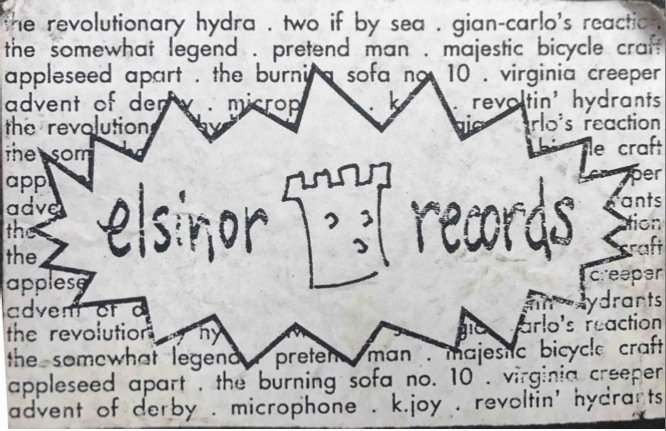 the revolutionary hydra . two if by sea . gian-carlo's reaction
the somewhat legend . pretend man . majestic bicycle craft
appleseed apart . the burning sofa no. 10 . virginia creeper
advent of derby . microp . k . revoltin' hydrants
the revolution hy gia rlo's reaction
the som le craft
app eper
adve rants
the tion
elsinor records
the craft
applese creeper
advent of d ydrants
the revolution hy gia arlo's reaction
the somewhat legend . pretend man . majestic bicycle craft
appleseed apart . the burning sofa no. 10 . virginia creeper
advent of derby . microphone . k.joy . revoltin' hydrants